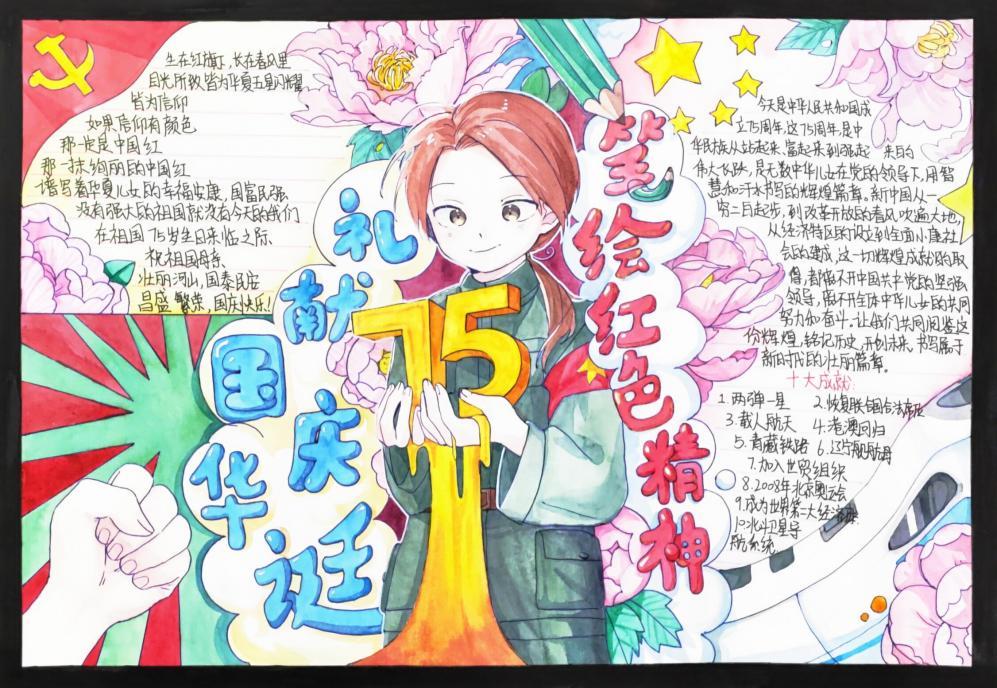 生在红旗下,长在春风里
目光所致皆为华夏五星闪耀
皆为信仰
如果信仰有颜色
那一定是中国红
那一抹绚丽的中国红
谱写着华夏儿女的幸福安康,国富民强
没有强大的祖国就没有今天的我们
在祖国75岁生日来临之际
祝祖国母亲
壮丽河山,国泰民安
昌盛繁荣,国庆快乐!
礼献国庆华诞
75
笔绘红色精神
今天是中华人民共和国成
立75周年,这75周年,是中
华民族从站起来、富起来到强起来的
伟大飞跃,是无数中华儿女在党的领导下,用智
慧和汗水书写的辉煌篇章。新中国从一
穷二白起步,到改革开放的春风吹遍大地,
从经济特区的设立到全面小康社
会的建成,这一切辉煌成就的取
得,都离不开中国共产党的坚强
领导,离不开全体中华儿女的共同
努力和奋斗。让我们共同阅鉴这
份辉煌,铭记历史,开创未来,书写属于
新时代的壮丽篇章。
十大成就:
1.两弹一星 2.恢复联合国合法席位
3.载人航天 4.港澳回归
5.青藏铁路 6.辽宁舰航母
7.加入世贸组织
8.2008年北京奥运会
9.成为世界第二大经济体
10.北斗卫星导
航系统